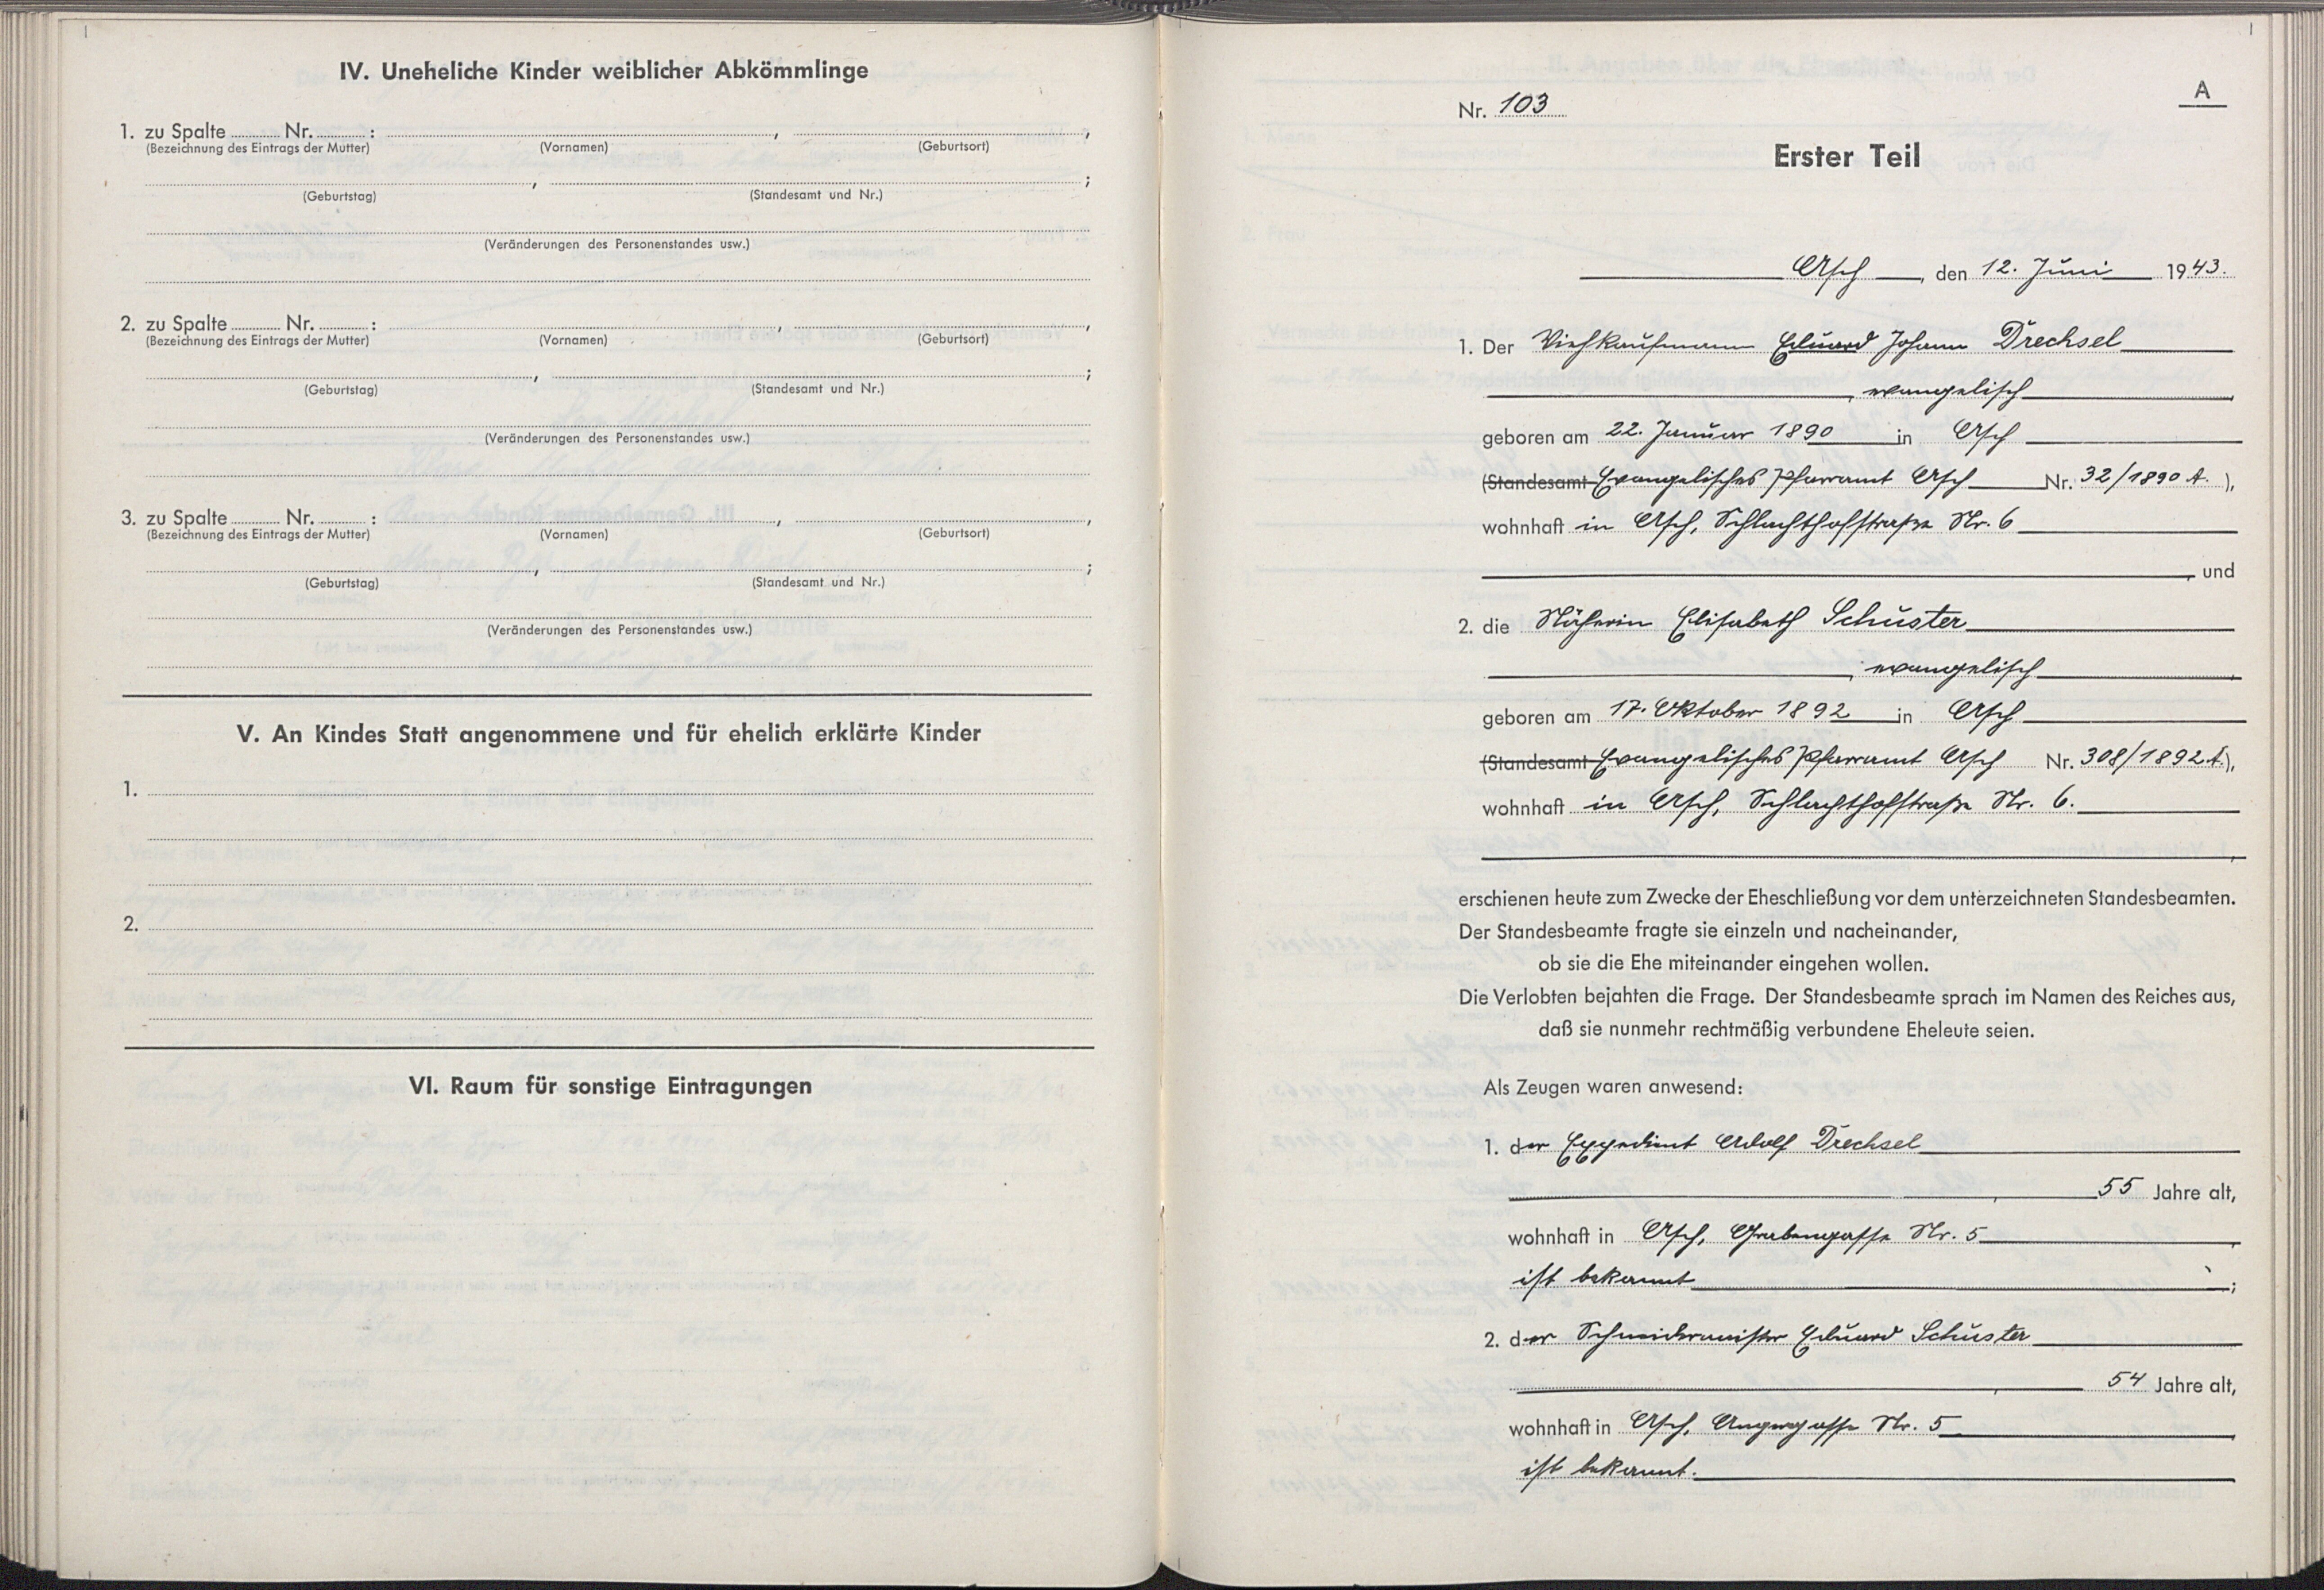 IV. Uneheliche Kinder weiblicher Abkömmlinge
1. zu Spalte Nr. : , ,
(Bezeichnung des Eintrags der Mutter) (Vornamen) (Geburtsort)
, ;
(Geburtstag) (Standesamt und Nr.)
(Veränderungen des Personenstandes usw.)
2. zu Spalte Nr. : , ,
(Bezeichnung des Eintrags der Mutter) (Vornamen) (Geburtsort)
, ;
(Geburtstag) (Standesamt und Nr.)
(Veränderungen des Personenstandes usw.)
3. zu Spalte Nr. : , ,
(Bezeichnung des Eintrags der Mutter) (Vornamen) (Geburtsort)
, ;
(Geburtstag) (Standesamt und Nr.)
(Veränderungen des Personenstandes usw.)
V. An Kindes Statt angenommene und für ehelich erklärte Kinder
1.
2.
VI. Raum für sonstige Eintragungen
A
Nr. 103
Erster Teil
Asch, den 12. Juni 1943.
1. Der Viehkaufmann Eduard Johann Drechsel
, evangelisch,
geboren am 22. Januar 1890 in Asch
(Standesamt Evangelisches Pfarramt Asch Nr. 32/1890 A.),
wohnhaft in Asch, Schlachthofstraße Nr. 6
, und
2. die Näherin Elisabeth Schuster
, evangelisch,
geboren am 17. Oktober 1892 in Asch
(Standesamt Evangelisches Pfarramt Asch Nr. 308/1892 A.),
wohnhaft in Asch, Schlachthofstraße Nr. 6.
,
erschienen heute zum Zwecke der Eheschließung vor dem unterzeichneten Standesbeamten.
Der Standesbeamte fragte sie einzeln und nacheinander,
ob sie die Ehe miteinander eingehen wollen.
Die Verlobten bejahten die Frage. Der Standesbeamte sprach im Namen des Reiches aus,
daß sie nunmehr rechtmäßig verbundene Eheleute seien.
Als Zeugen waren anwesend:
1. der Expedient Adolf Drechsel
, 55 Jahre alt,
wohnhaft in Asch, Grabengasse Nr. 5,
ist bekannt ;
2. der Schneidermeister Eduard Schuster
, 54 Jahre alt,
wohnhaft in Asch, Angergasse Nr. 5,
ist bekannt.